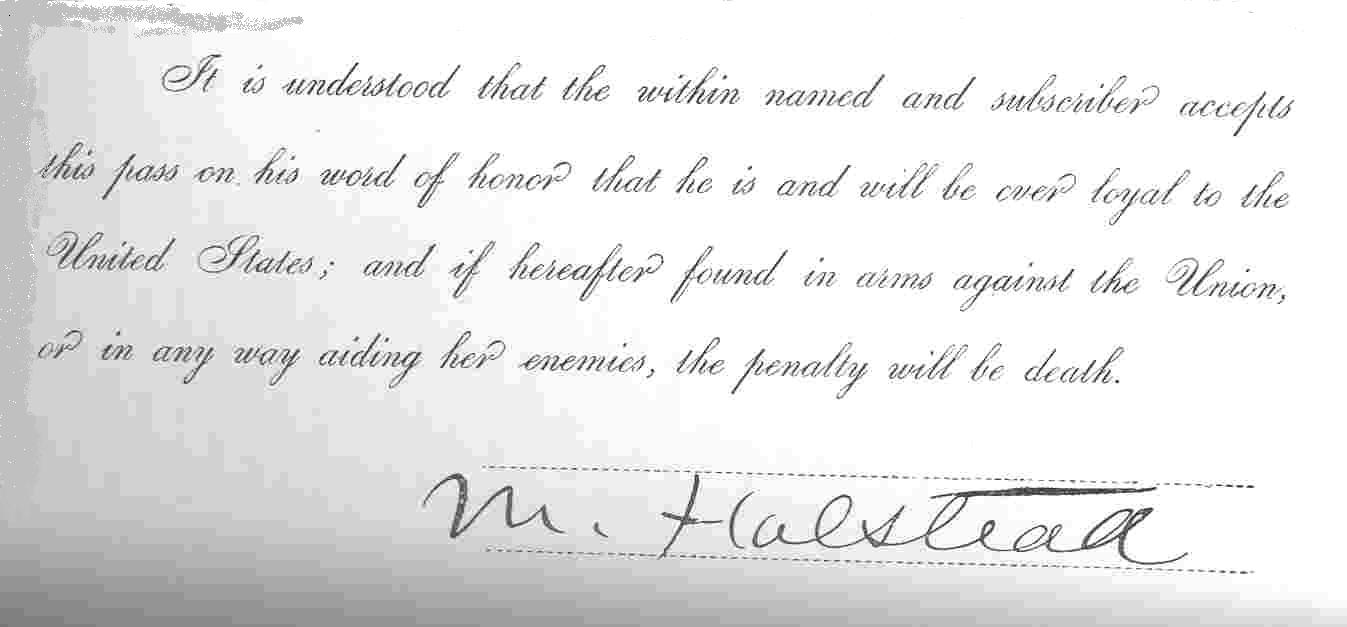 It is understood that the within named and subscriber accepts
this pass on his word of honor that he is and will be ever loyal to the
United States; and if hereafter found in arms against the Union,
or in any way aiding her enemies, the penalty will be death.
M. Halstead